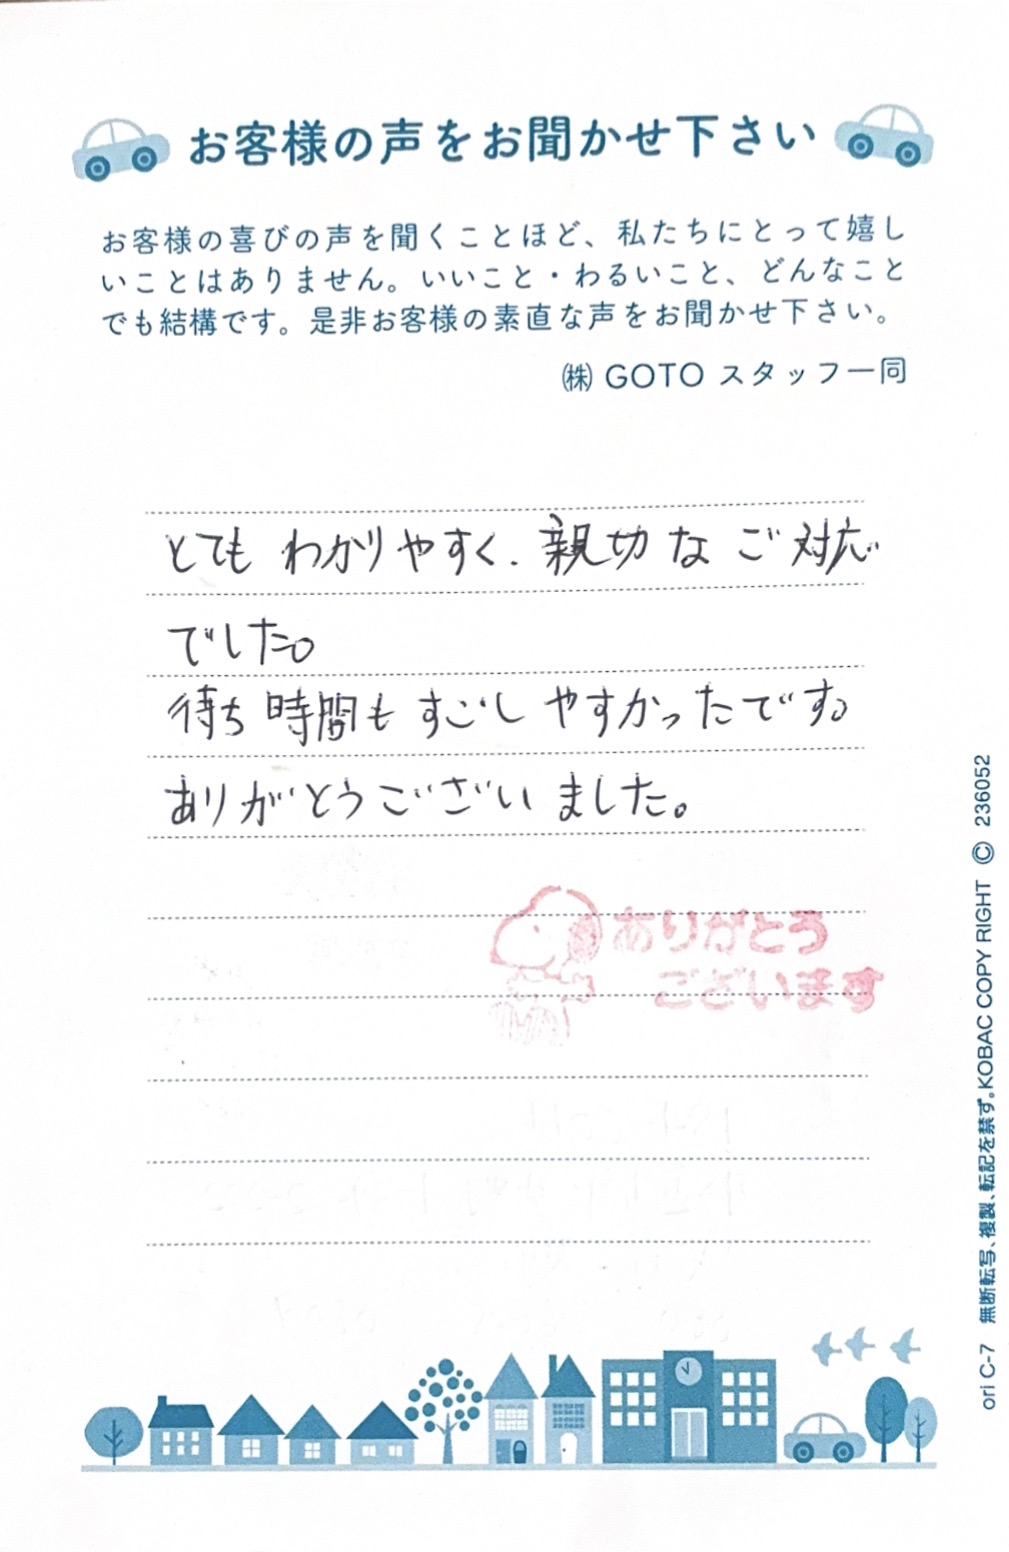 お客様の声をお聞かせ下さい
お客様の喜びの声を聞くことほど、私たちにとって嬉し
いことはありません。いいこと・わるいこと、どんなこと
でも結構です。是非お客様の素直な声をお聞かせ下さい。
㈱ GOTO スタッフ一同
とても わかりやすく、親切な ご対応
でした。
待ち時間も すごし やすかったです。
ありがとうございました。
ありがとう
ございます
ori C-7 無断転写、複製、転記を禁ず。KOBAC COPY RIGHT © 236052